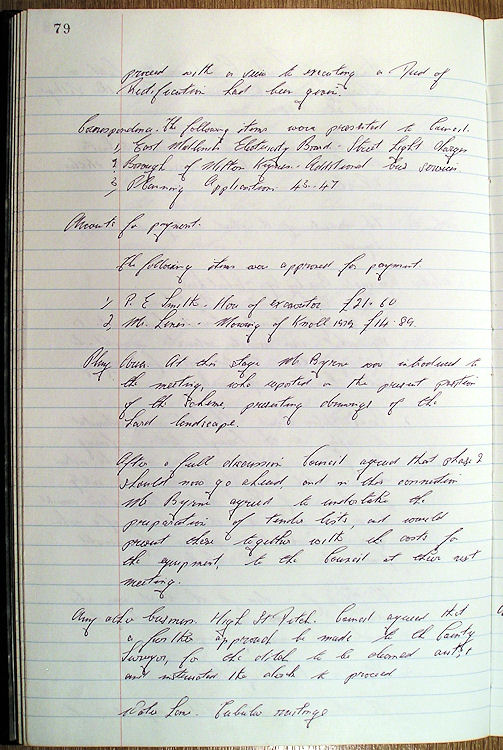 79
proceed with a view to executing a Deed of
Rectification had been given.
Correspondence. The following items were presented to Council.
1, East Midlands Electricity Board - Street Light charges
2, Borough of Milton Keynes - Additional bus services
3, Planning Applications 43-47
Accounts for payment.
The following items were approved for payment
1, R. E. Smith - Hire of excavator £21-60
2, Mr. Lines - Mowing of Knoll 1979 £14-89
Play Area. At this stage Mr Byrne was introduced to
the meeting, who reported on the present position
of the scheme, presenting drawings of the
hard landscape.
After a full discussion Council agreed that phase 2
should now go ahead and in this connection
Mr Byrne agreed to undertake the
preparation of tender lists, and would
present these together with the costs for
the equipment, to the Council at their next
meeting.
Any other business. High St Ditch. Council agreed that
a further approach be made to the County
Surveyor, for the ditch to be cleaned out,
and instructed the clerk to proceed
Water Lane.